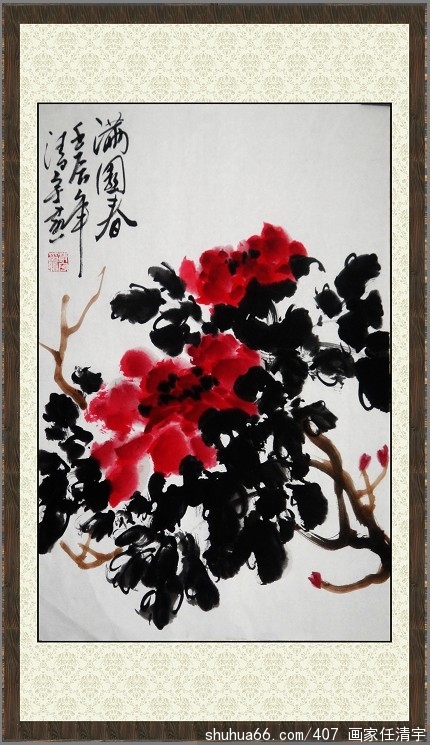 滿園春
壬辰年
清宇寫
shuhua66.com/407 画家任清宇